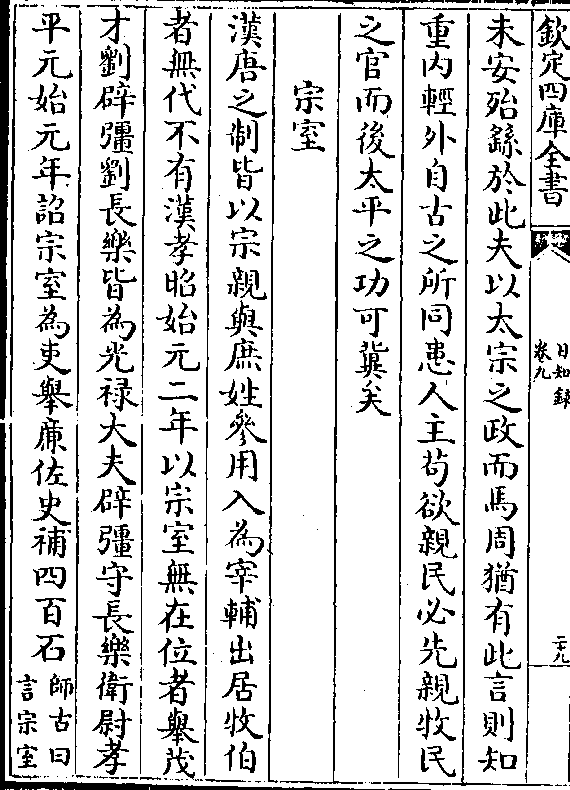 欽定四庫全書
日知錄
卷九
二十九
未安殆繇於此夫以太宗之政而馬周猶有此言則知
重內輕外自古之所同患人主苟欲親民必先親牧民
之官而後太平之功可冀矣
宗室
漢唐之制皆以宗親與庶姓參用入為宰輔出居牧伯
者無代不有漢孝昭始元二年以宗室無在位者舉茂
才劉辟彊劉長樂皆為光禄大夫辟彊守長樂衛尉孝
平元始元年詔宗室為吏舉廉佐史補四百石師古曰
言宗室